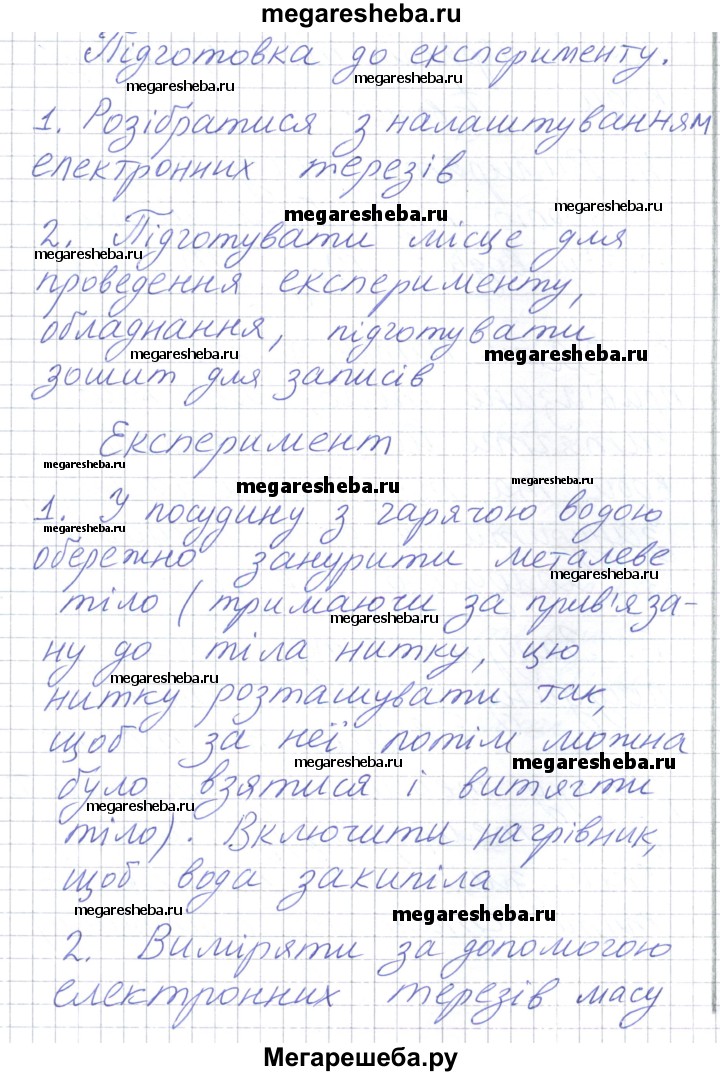 megaresheba.ru
Підготовка до експерименту.
megaresheba.ru megaresheba.ru
1. Розібратися з налаштуванням
електронних терезів
megaresheba.ru megaresheba.ru
2. Підготувати місце для
megaresheba.ru
проведення експерименту,
обладнання, підготувати
megaresheba.ru megaresheba.ru
зошит для записів
Експеримент
megaresheba.ru megaresheba.ru megaresheba.ru
1. У посудину з гарячою водою
megaresheba.ru
обережно занурити металеве
megaresheba.ru
тіло (тримаючи за прив'яза-
megaresheba.ru
ну до тіла нитку, цю
megaresheba.ru
нитку розташувати так,
щоб за неї потім можна
megaresheba.ru megaresheba.ru
було взятися і витягти
megaresheba.ru
тіло). Включити нагрівник,
щоб вода закипіла
megaresheba.ru megaresheba.ru
2. Виміряти за допомогою
електронних терезів масу
Мегарешеба.ру